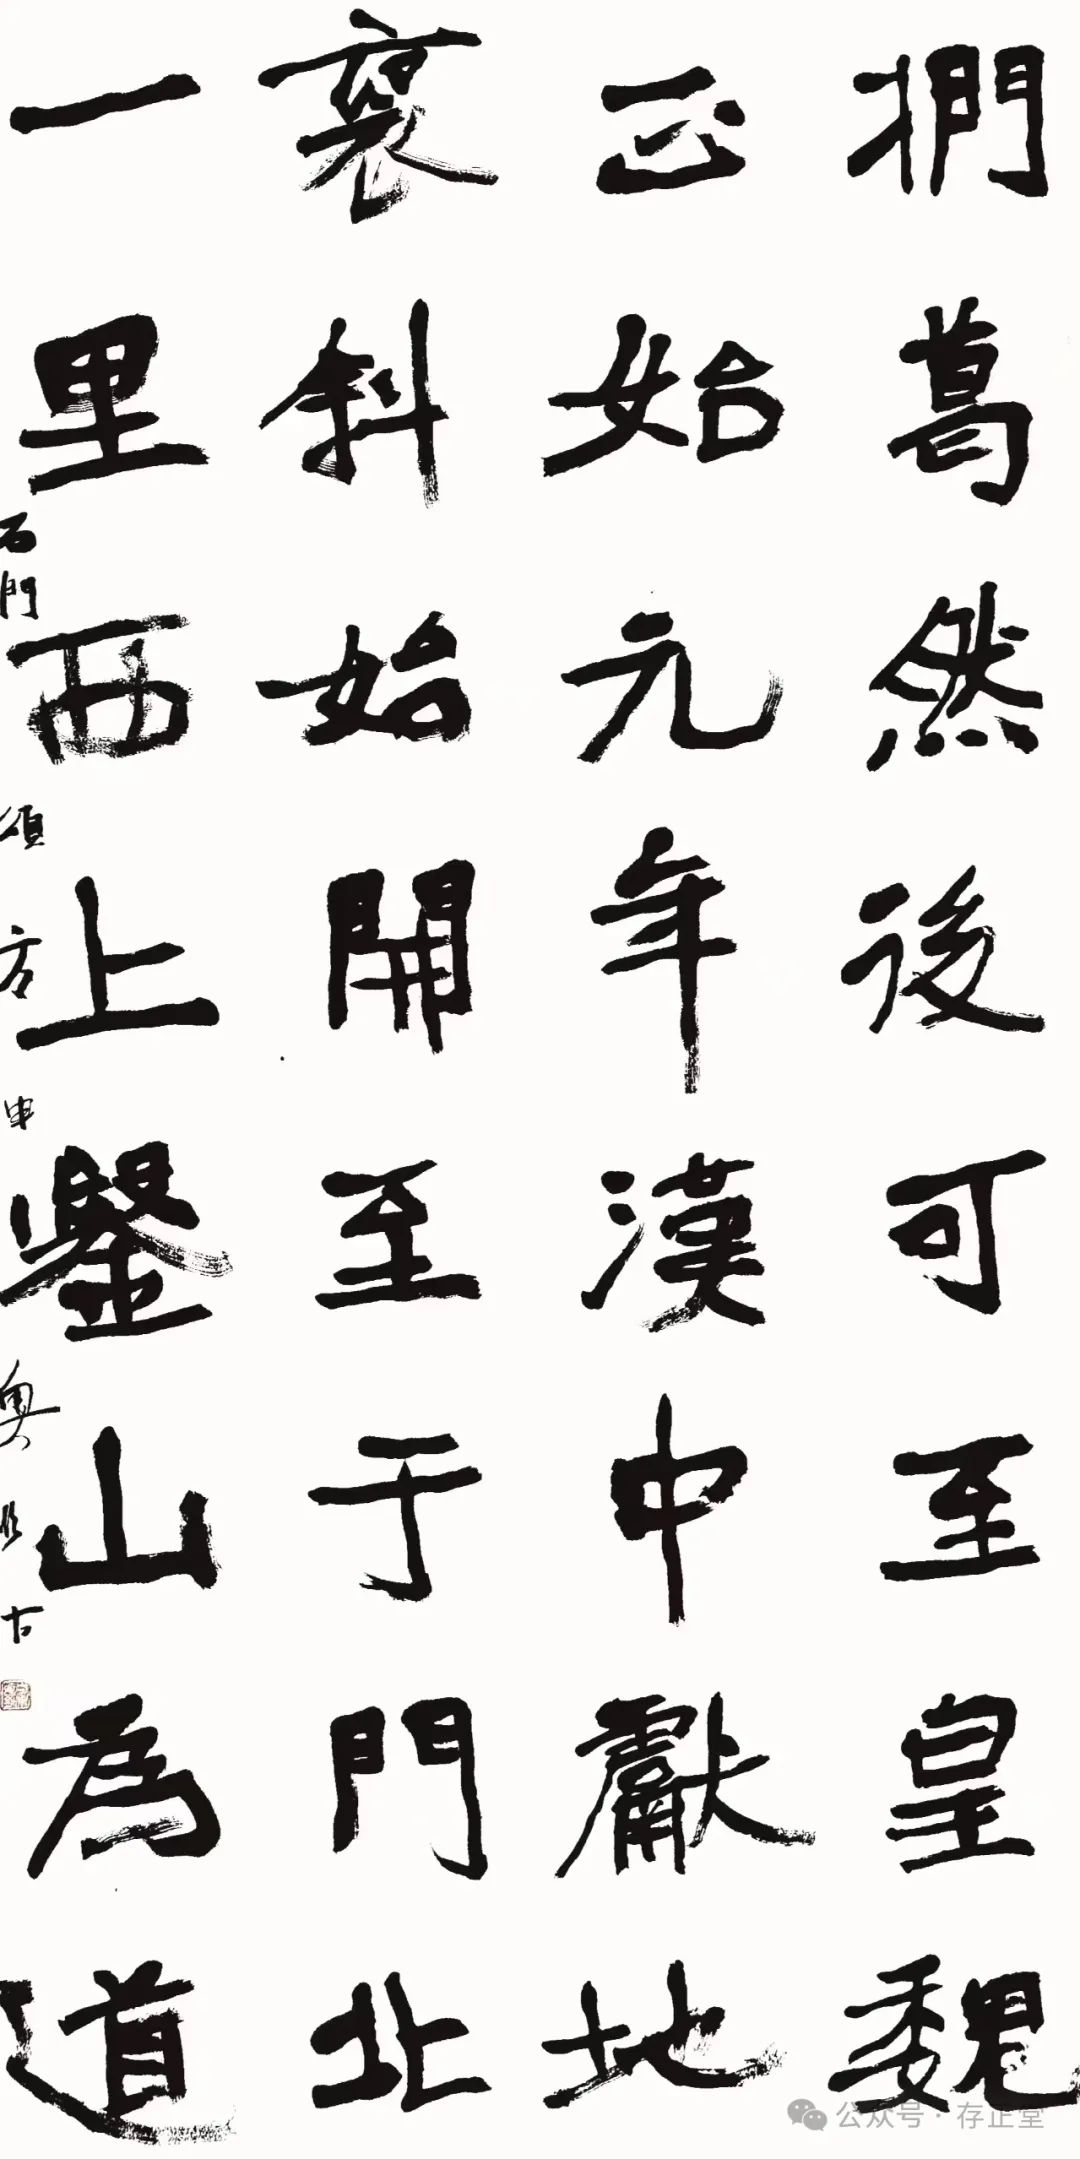 捫葛然後可至皇魏
正始元年漢中獻地
褒斜始開至于門北
一里西上鑿山為道
石門頌方
公众号·存正堂